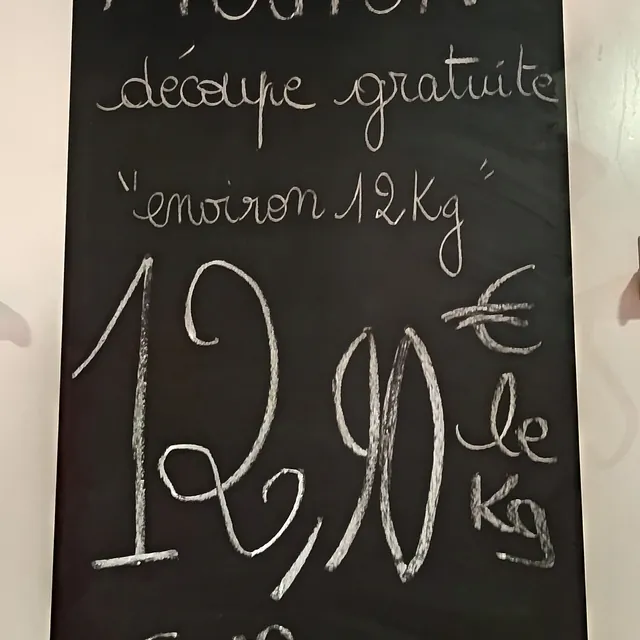 découpe gratuite
"environ 12Kg"
12,90 € le Kg